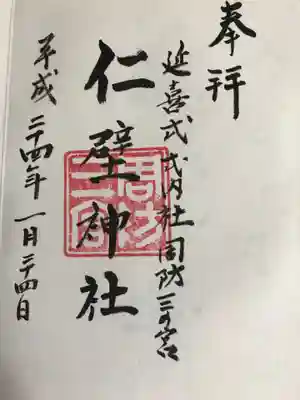 奉拝
延喜式式内社周防三の宮
仁壁神社
平成二十四年一月二十四日
周防三宮